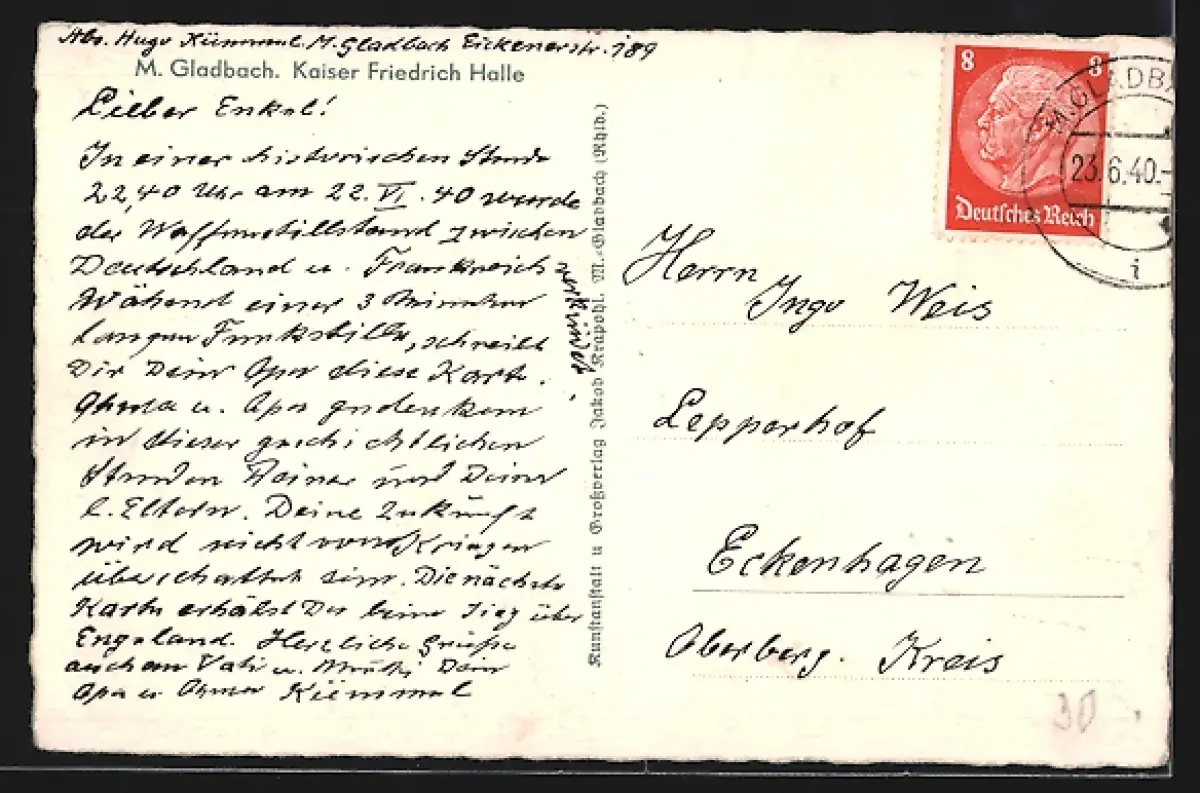 Abs. Hugo Kümmel. M. Gladbach Eickenerstr. 189
M. Gladbach. Kaiser Friedrich Halle
Lieber Enkel!
In einer historischen Stunde
22,40 Uhr am 22. VI. 40 wurde
der Waffenstillstand zwischen
Deutschland u. Frankreich
verkündet
Während einer 3 Minuten
langen Funkstille, schreibt
Dir Dein Opa diese Karte.
Ohma u. Opa gedenken
in dieser geschichtlichen
Stunden Deiner und Deiner
l. Eltern. Deine Zukunft
wird nicht von Kriegen
überschattet sein. Die nächste
Karte erhälst Du beim Sieg über
Engeland. Herzliche Grüße
auch an Vati u. Mutti Dein
Opa u Ohma Kümmel
Kunstanstalt u Großverlag Jakob Krapohl. M.-Gladbach (Rhld.)
8 8
Deutsches Reich
M. GLADBA
23.6.40.-
i
Herrn
Ingo Weis
Lepperhof
Eckenhagen
Oberberg. Kreis
30